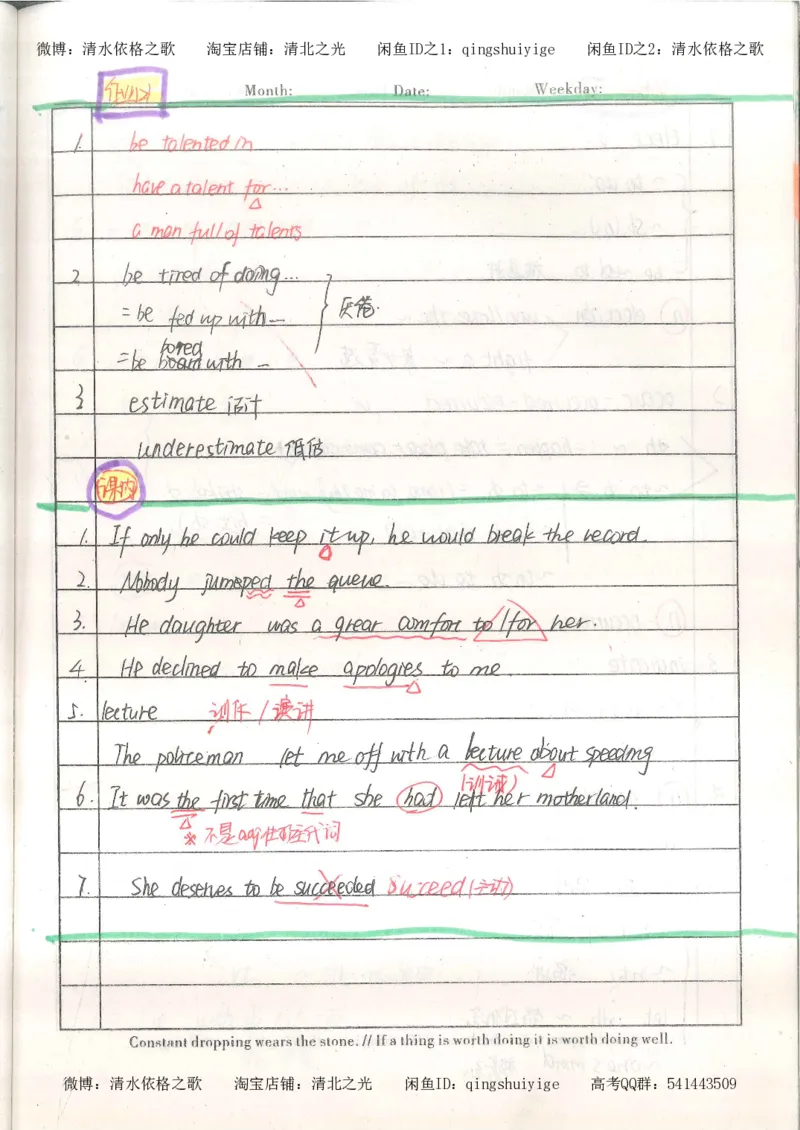 微博：清水依格之歌 淘宝店铺：清北之光 闲鱼ID之1：qingshuiyige 闲鱼ID之2：清水依格之歌
Month: Date: Weekday:
1. be talented in
have a talent for…
a man full of talents
2 be tired of doing…
=be fed up with — 厌倦.
bored
=be with —
3 estimate 估计
underestimate 低估
课内
1. If only he could keep it up, he would break the record.
2. Nobody jumped the queue.
3. He daughter was a great comfort to/for her.
4. He declined to make apologies to me.
5. lecture 训斥/演讲
The policeman let me off with a lecture about speeding
(训诫)
6. It was the first time that she had left her motherland.
※不是adj性的主代词
7. She deserves to be succeeded succeed(主动)
Constant dropping wears the stone. // If a thing is worth doing it is worth doing well.
微博：清水依格之歌 淘宝店铺：清北之光 闲鱼ID：qingshuiyige 高考QQ群：541443509